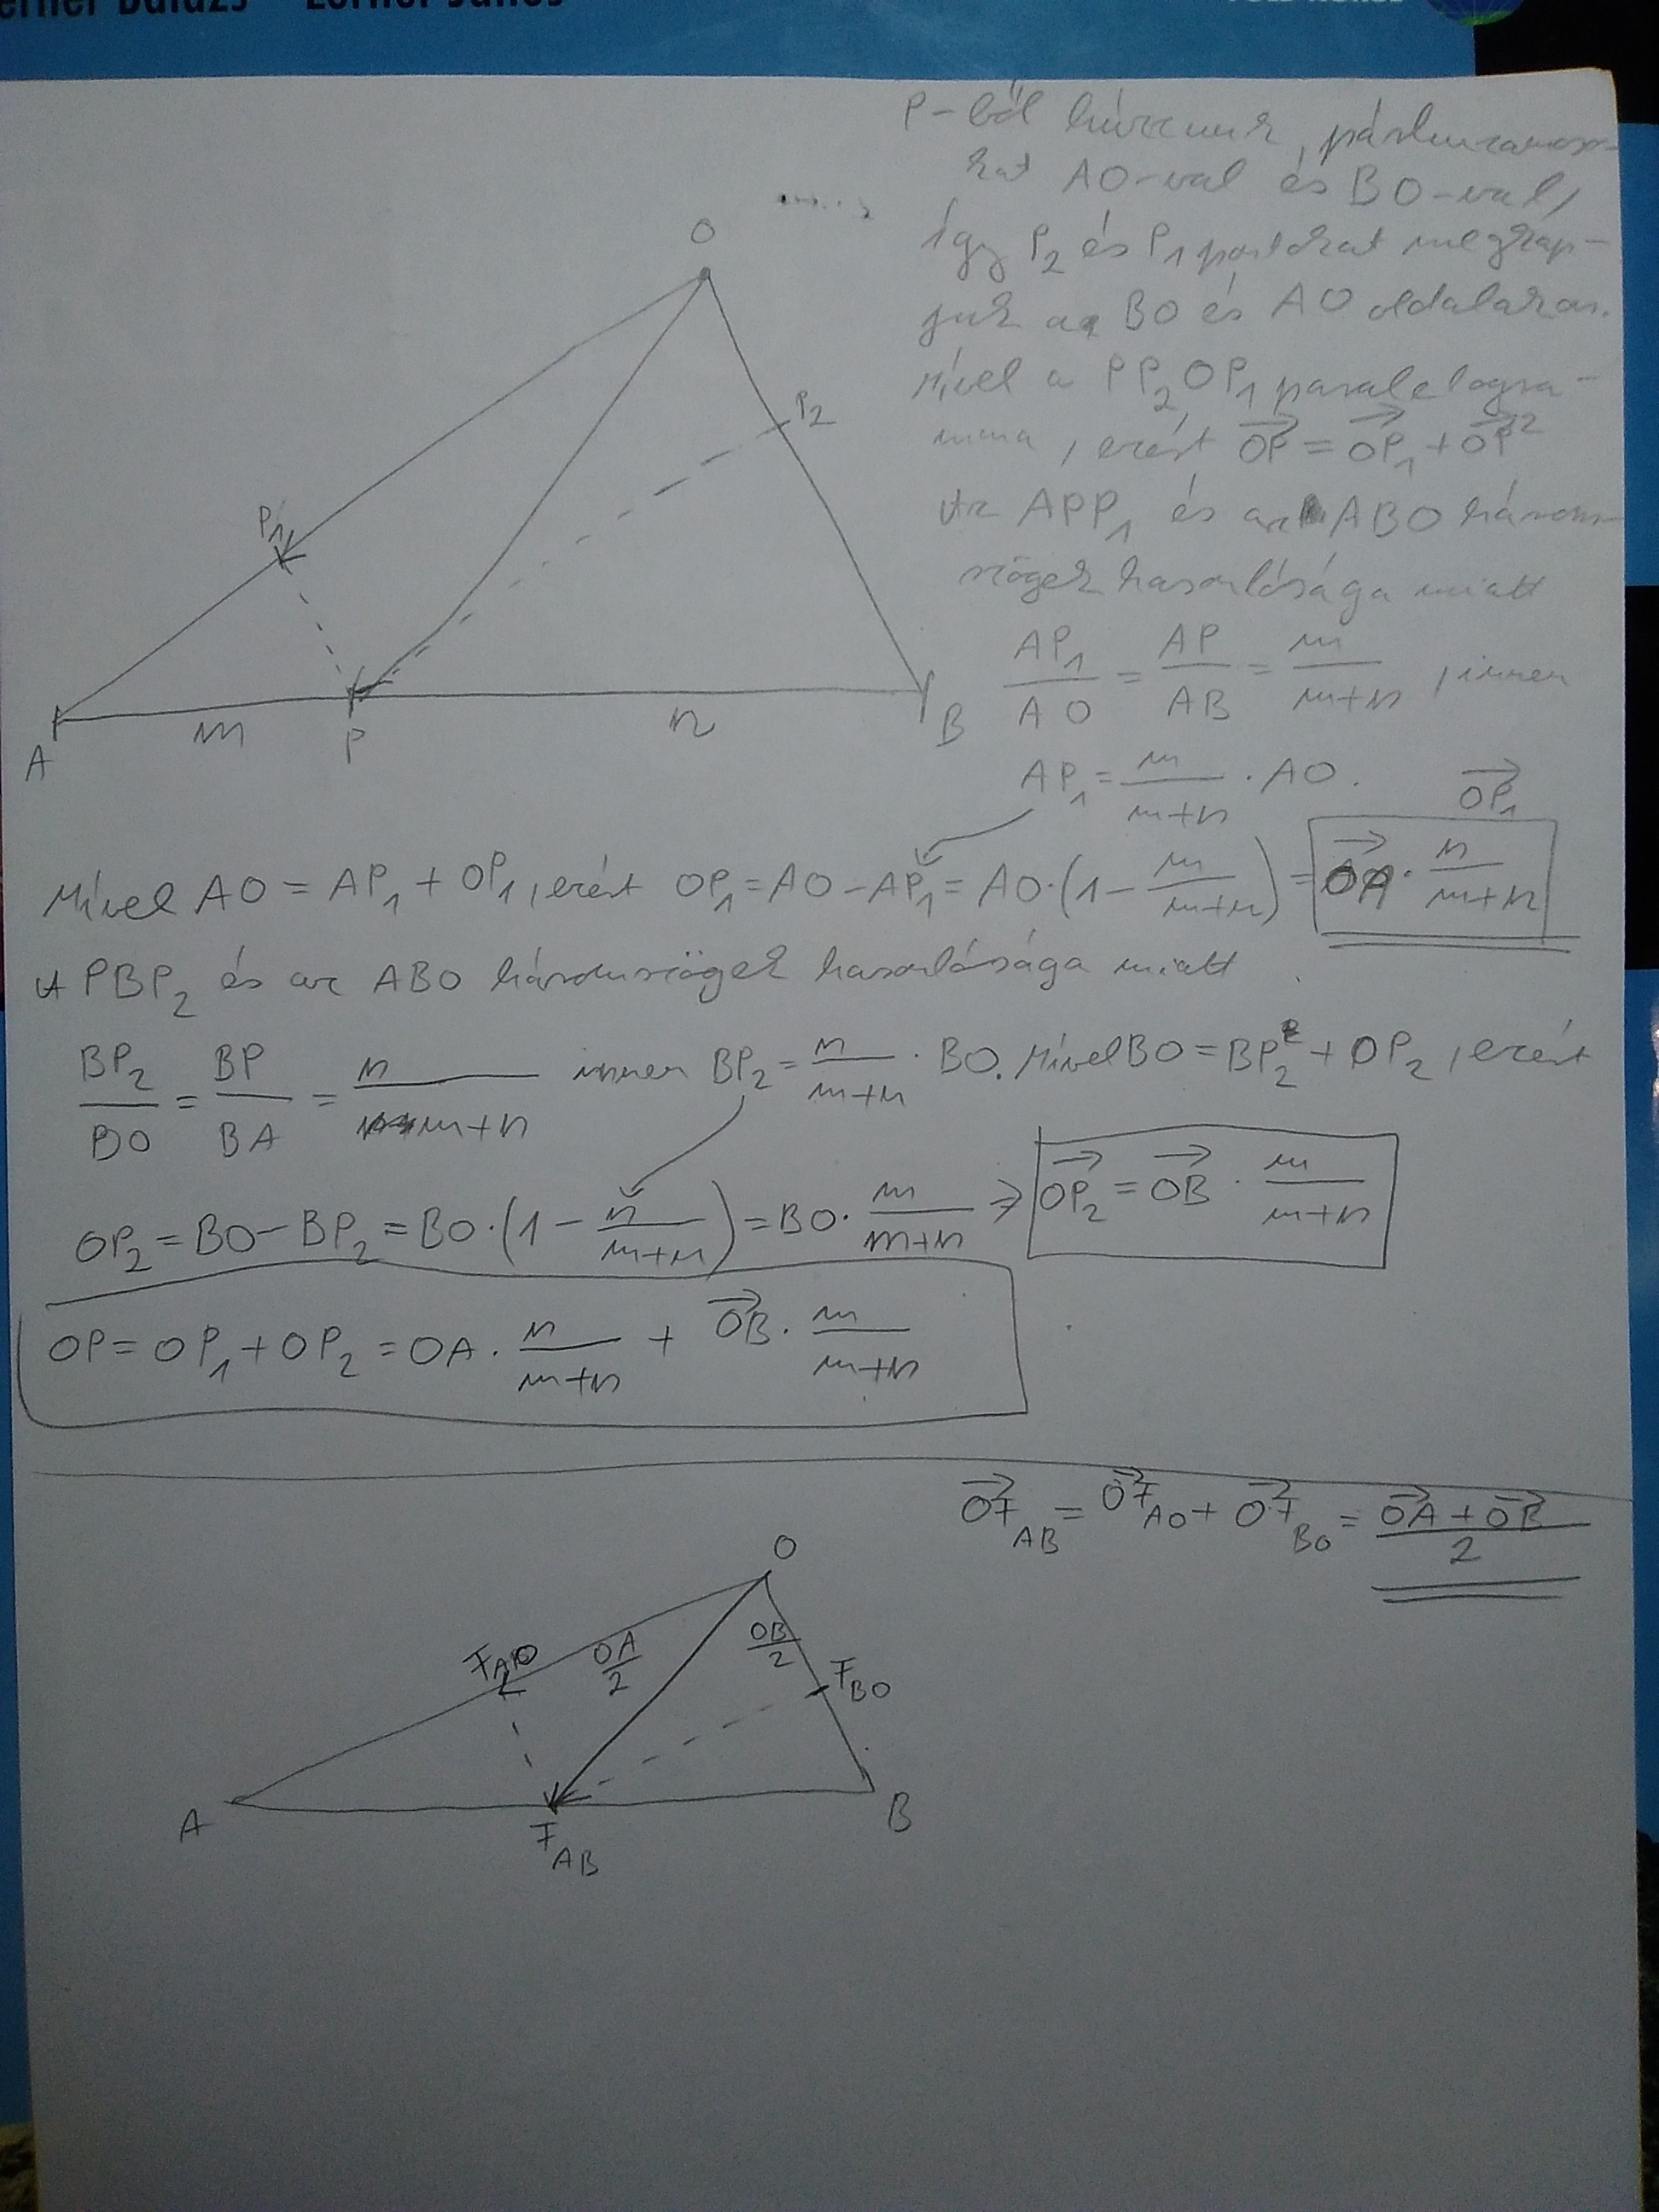 erner Balázs - Lerner János
FÖLD-KÖRÖZ
P-ből húzzunk párhuzamoso-
kat AO-val és BO-val,
így P₂ és P₁ pontokat megkap-
juk a BO és AO oldalakon.
Mivel a PP₂OP₁ paralelogra-
mma, ezért OP⃗ = OP₁⃗ + OP₂⃗
Az APP₁ és az ABO három-
szögek hasonlósága miatt
AP₁/AO = AP/AB = m/(m+n), innen
AP₁ = m/(m+n) · AO.
O
P₂
P₁
A
m
P
n
B
OP₁⃗
Mivel AO = AP₁ + OP₁, ezért OP₁ = AO - AP₁ = AO · (1 - m/(m+n)) = OA⃗ · n/(m+n)
A PBP₂ és az ABO háromszögek hasonlósága miatt
BP₂/BO = BP/BA = n/(m+n) innen BP₂ = n/(m+n) · BO. Mivel BO = BP₂ + OP₂, ezért
OP₂ = BO - BP₂ = BO · (1 - n/(m+n)) = BO · m/(m+n) ⇒ OP₂⃗ = OB⃗ · m/(m+n)
OP = OP₁ + OP₂ = OA · n/(m+n) + OB⃗ · m/(m+n)
OF⃗_AB = OF⃗_AO + OF⃗_BO = (OA⃗ + OB⃗)/2
O
F_AO
OA/2
OB/2
F_BO
A
F_AB
B